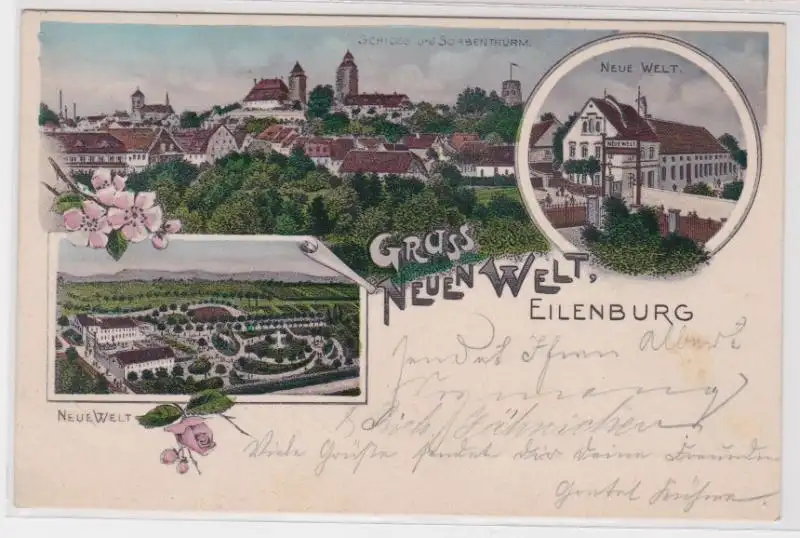 SCHLOSS und SORBENTHURM.
NEUE WELT.
NEUE WELT
GRUSS
NEUEN WELT,
EILENBURG
NEUE WELT
sendet Ihnen Albert
Rich. Jähnichen
Viele Grüße sendet Dir Deine Freundin